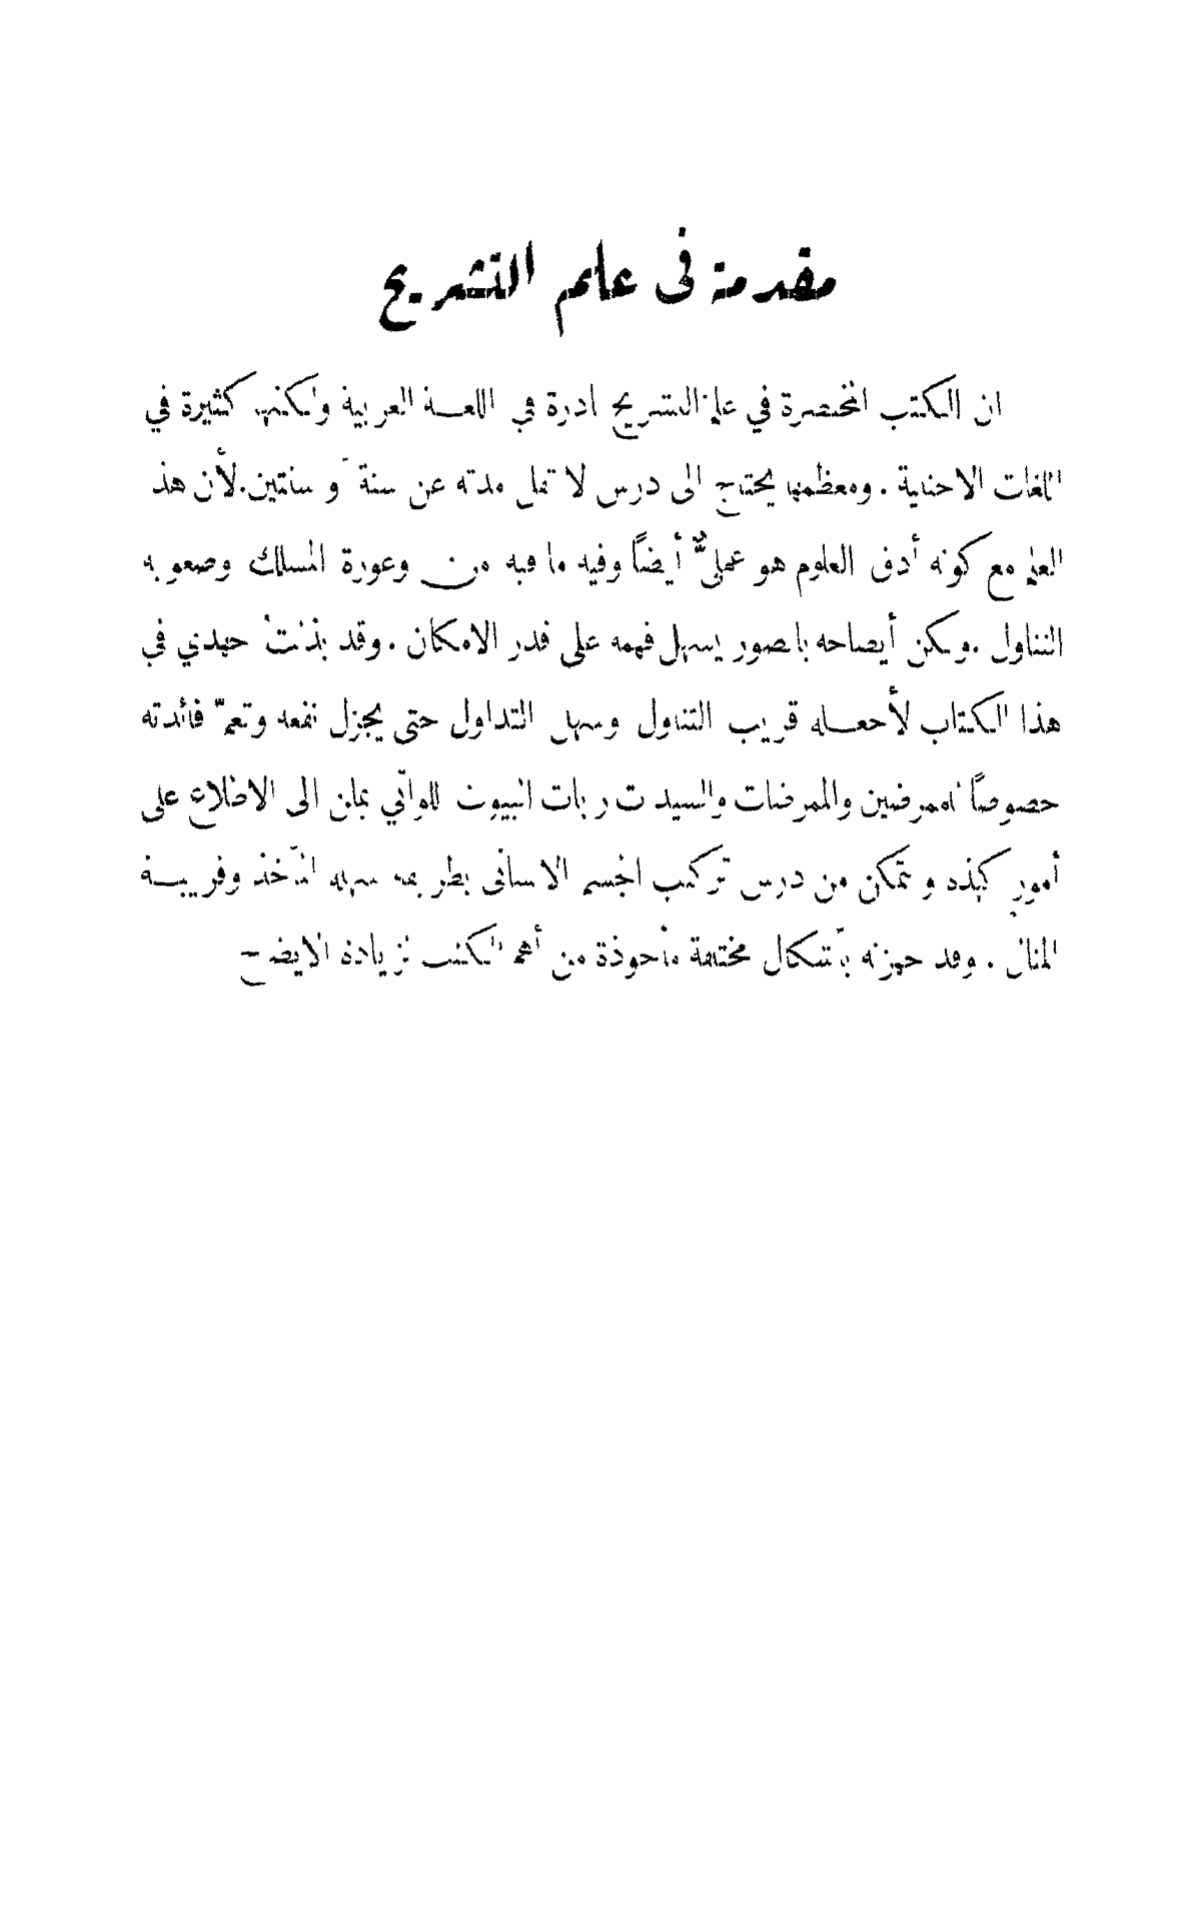 مقدمة في علم التشريح
ان الكتب المختصرة في علم التشريح نادرة في اللغة العربية ولكنها كثيرة في
اللغات الاجنبية . ومعظمها يحتاج الى درس لا تقل مدته عن سنة أو سنتين. لأن هذا
العلم مع كونه أدق العلوم هو عمليٌّ أيضًا وفيه ما فيه من وعورة المسلك وصعوبة
التناول . ويمكن أيضاحه بالصور ليسهل فهمه على قدر الامكان . وقد بذلت جهدي في
هذا الكتاب لأجعله قريب التناول وسهل التداول حتى يجزل نفعه وتعمّ فائدته
خصوصًا للممرضين والممرضات والسيدات ربات البيوت اللواتي يملن الى الاطلاع على
أمور كهذه و يتمكن من درس تركيب الجسم الانسانى بطريقة سهلة المآخذ وقريبة
المنال . وقد جهزته بأشكال مختلفة مأخوذة من أهم الكتب لزيادة الايضاح